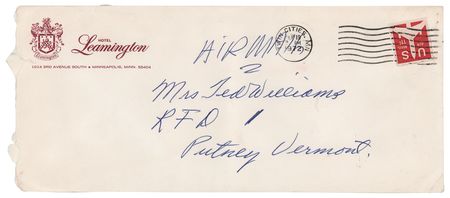 HOTEL
Leamington
1014 3RD AVENUE SOUTH • MINNEAPOLIS, MINN. 55404
AIR MAIL
TWIN CITIES, MN
1972
Mrs Ted Williams
RFD 1
Putney Vermont.